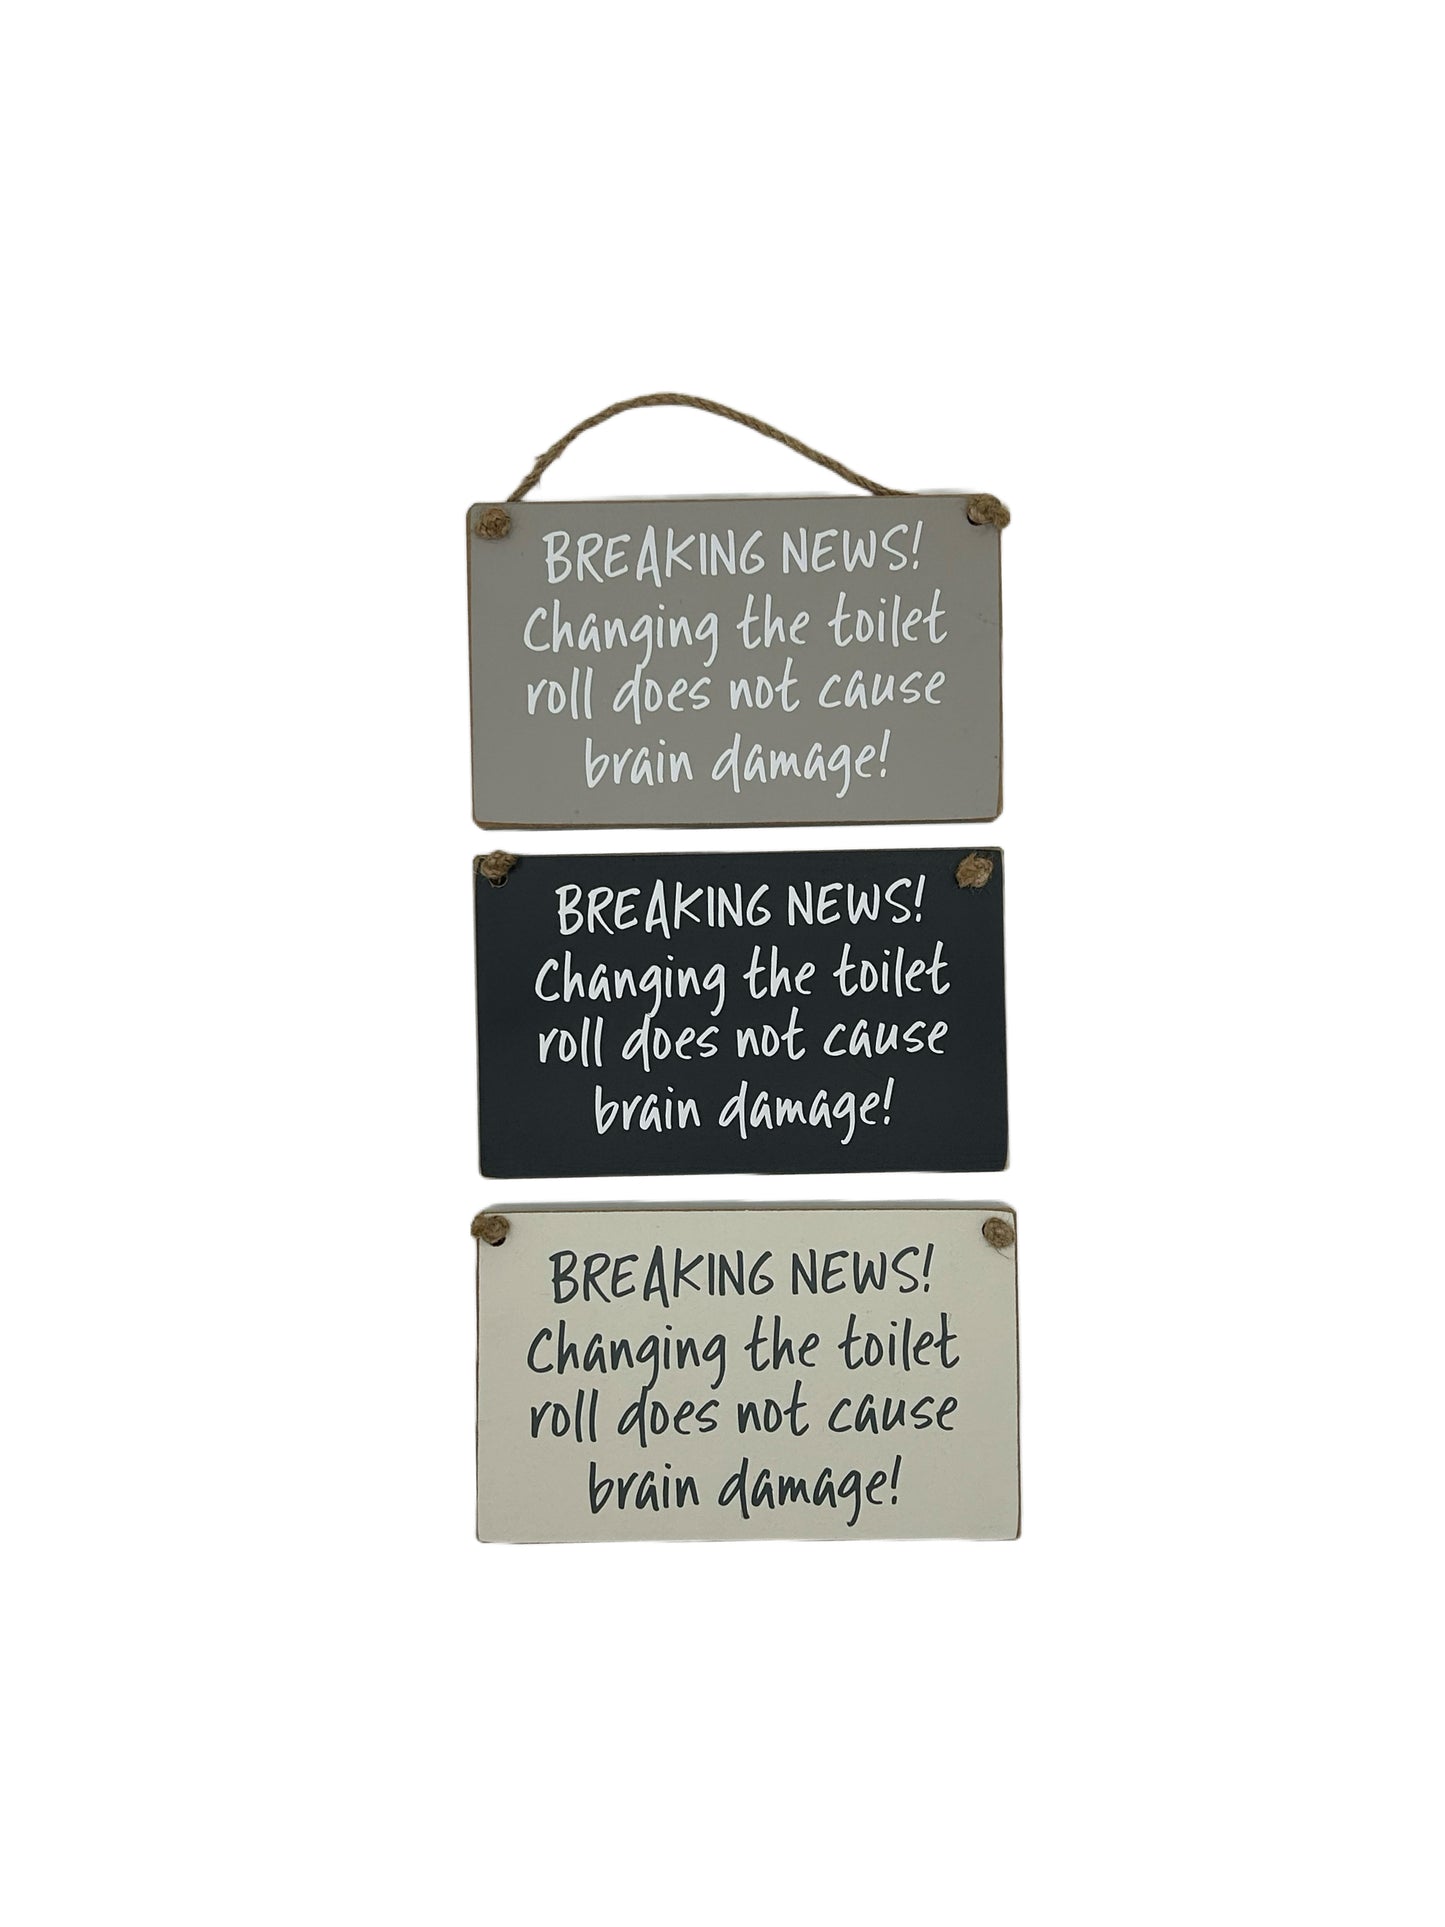 BREAKING NEWS!
Changing the toilet
roll does not cause
brain damage!
BREAKING NEWS!
Changing the toilet
roll does not cause
brain damage!
BREAKING NEWS!
Changing the toilet
roll does not cause
brain damage!